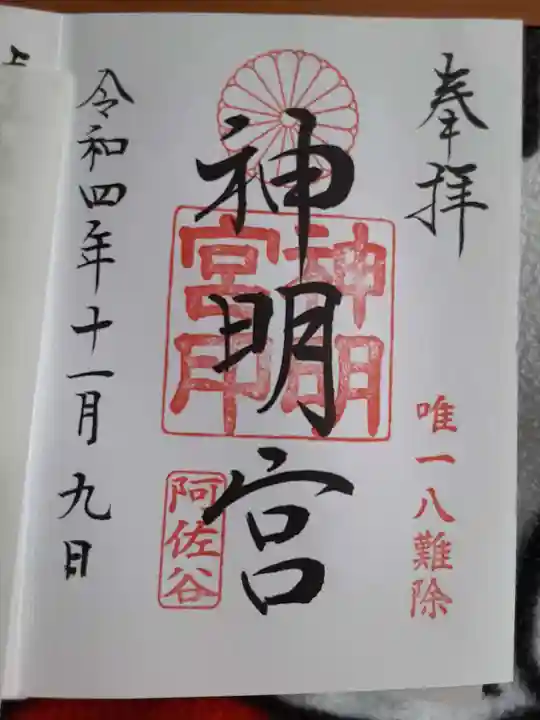 奉拝
唯一八難除
神明宮
神明宮印
阿佐谷
令和四年十一月九日
上